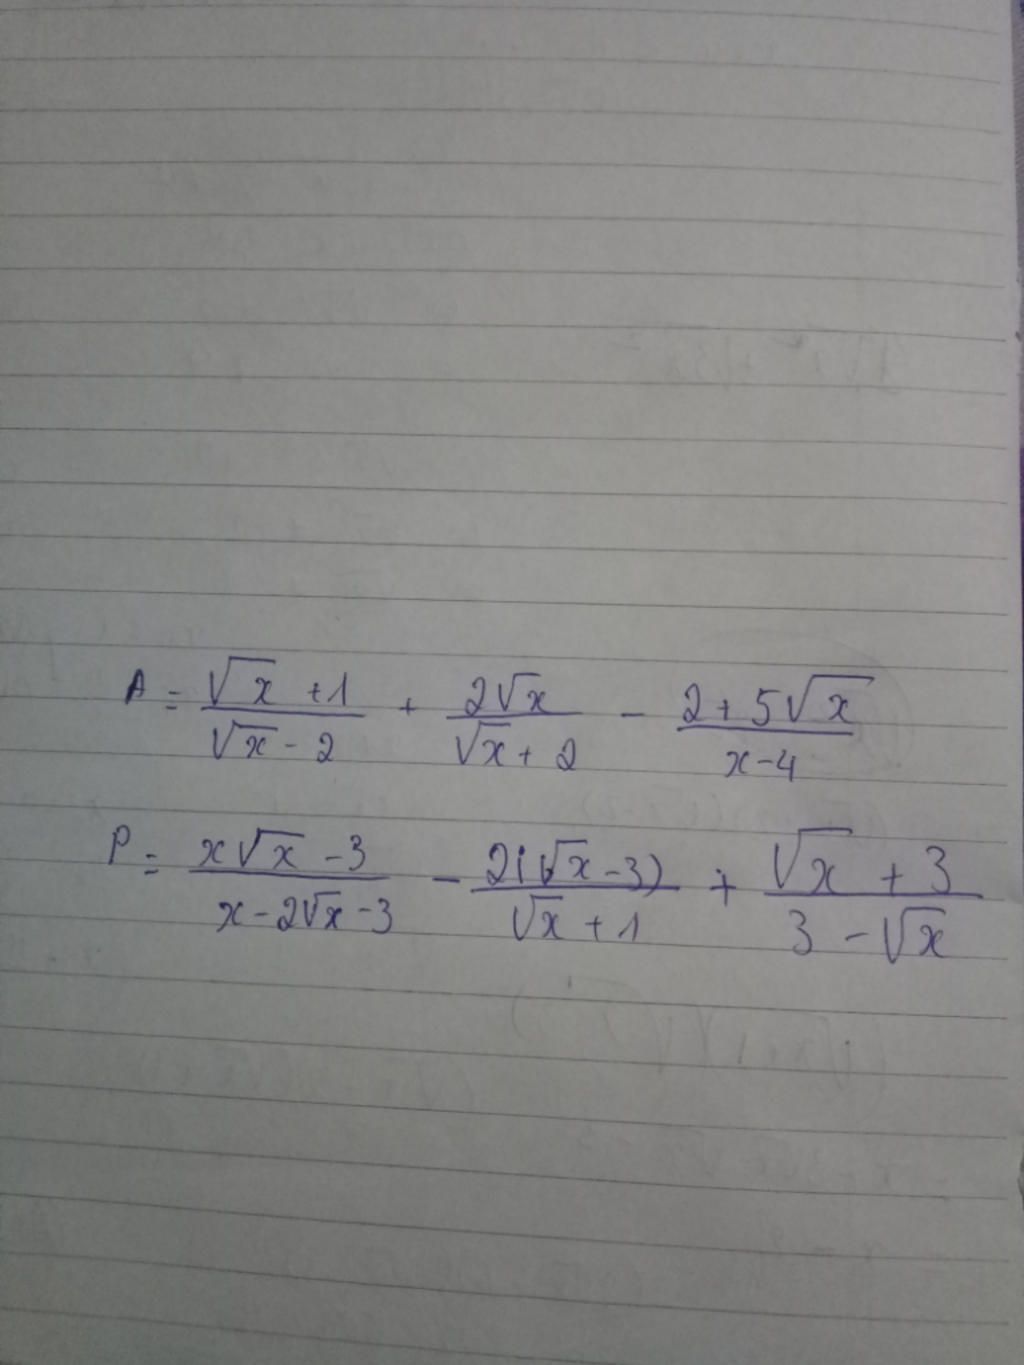 A = \frac{\sqrt{x}+1}{\sqrt{x}-2} + \frac{2\sqrt{x}}{\sqrt{x}+2} - \frac{2+5\sqrt{x}}{x-4}
P = \frac{x\sqrt{x}-3}{x-2\sqrt{x}-3} - \frac{2(\sqrt{x}-3)}{\sqrt{x}+1} + \frac{\sqrt{x}+3}{3-\sqrt{x}}